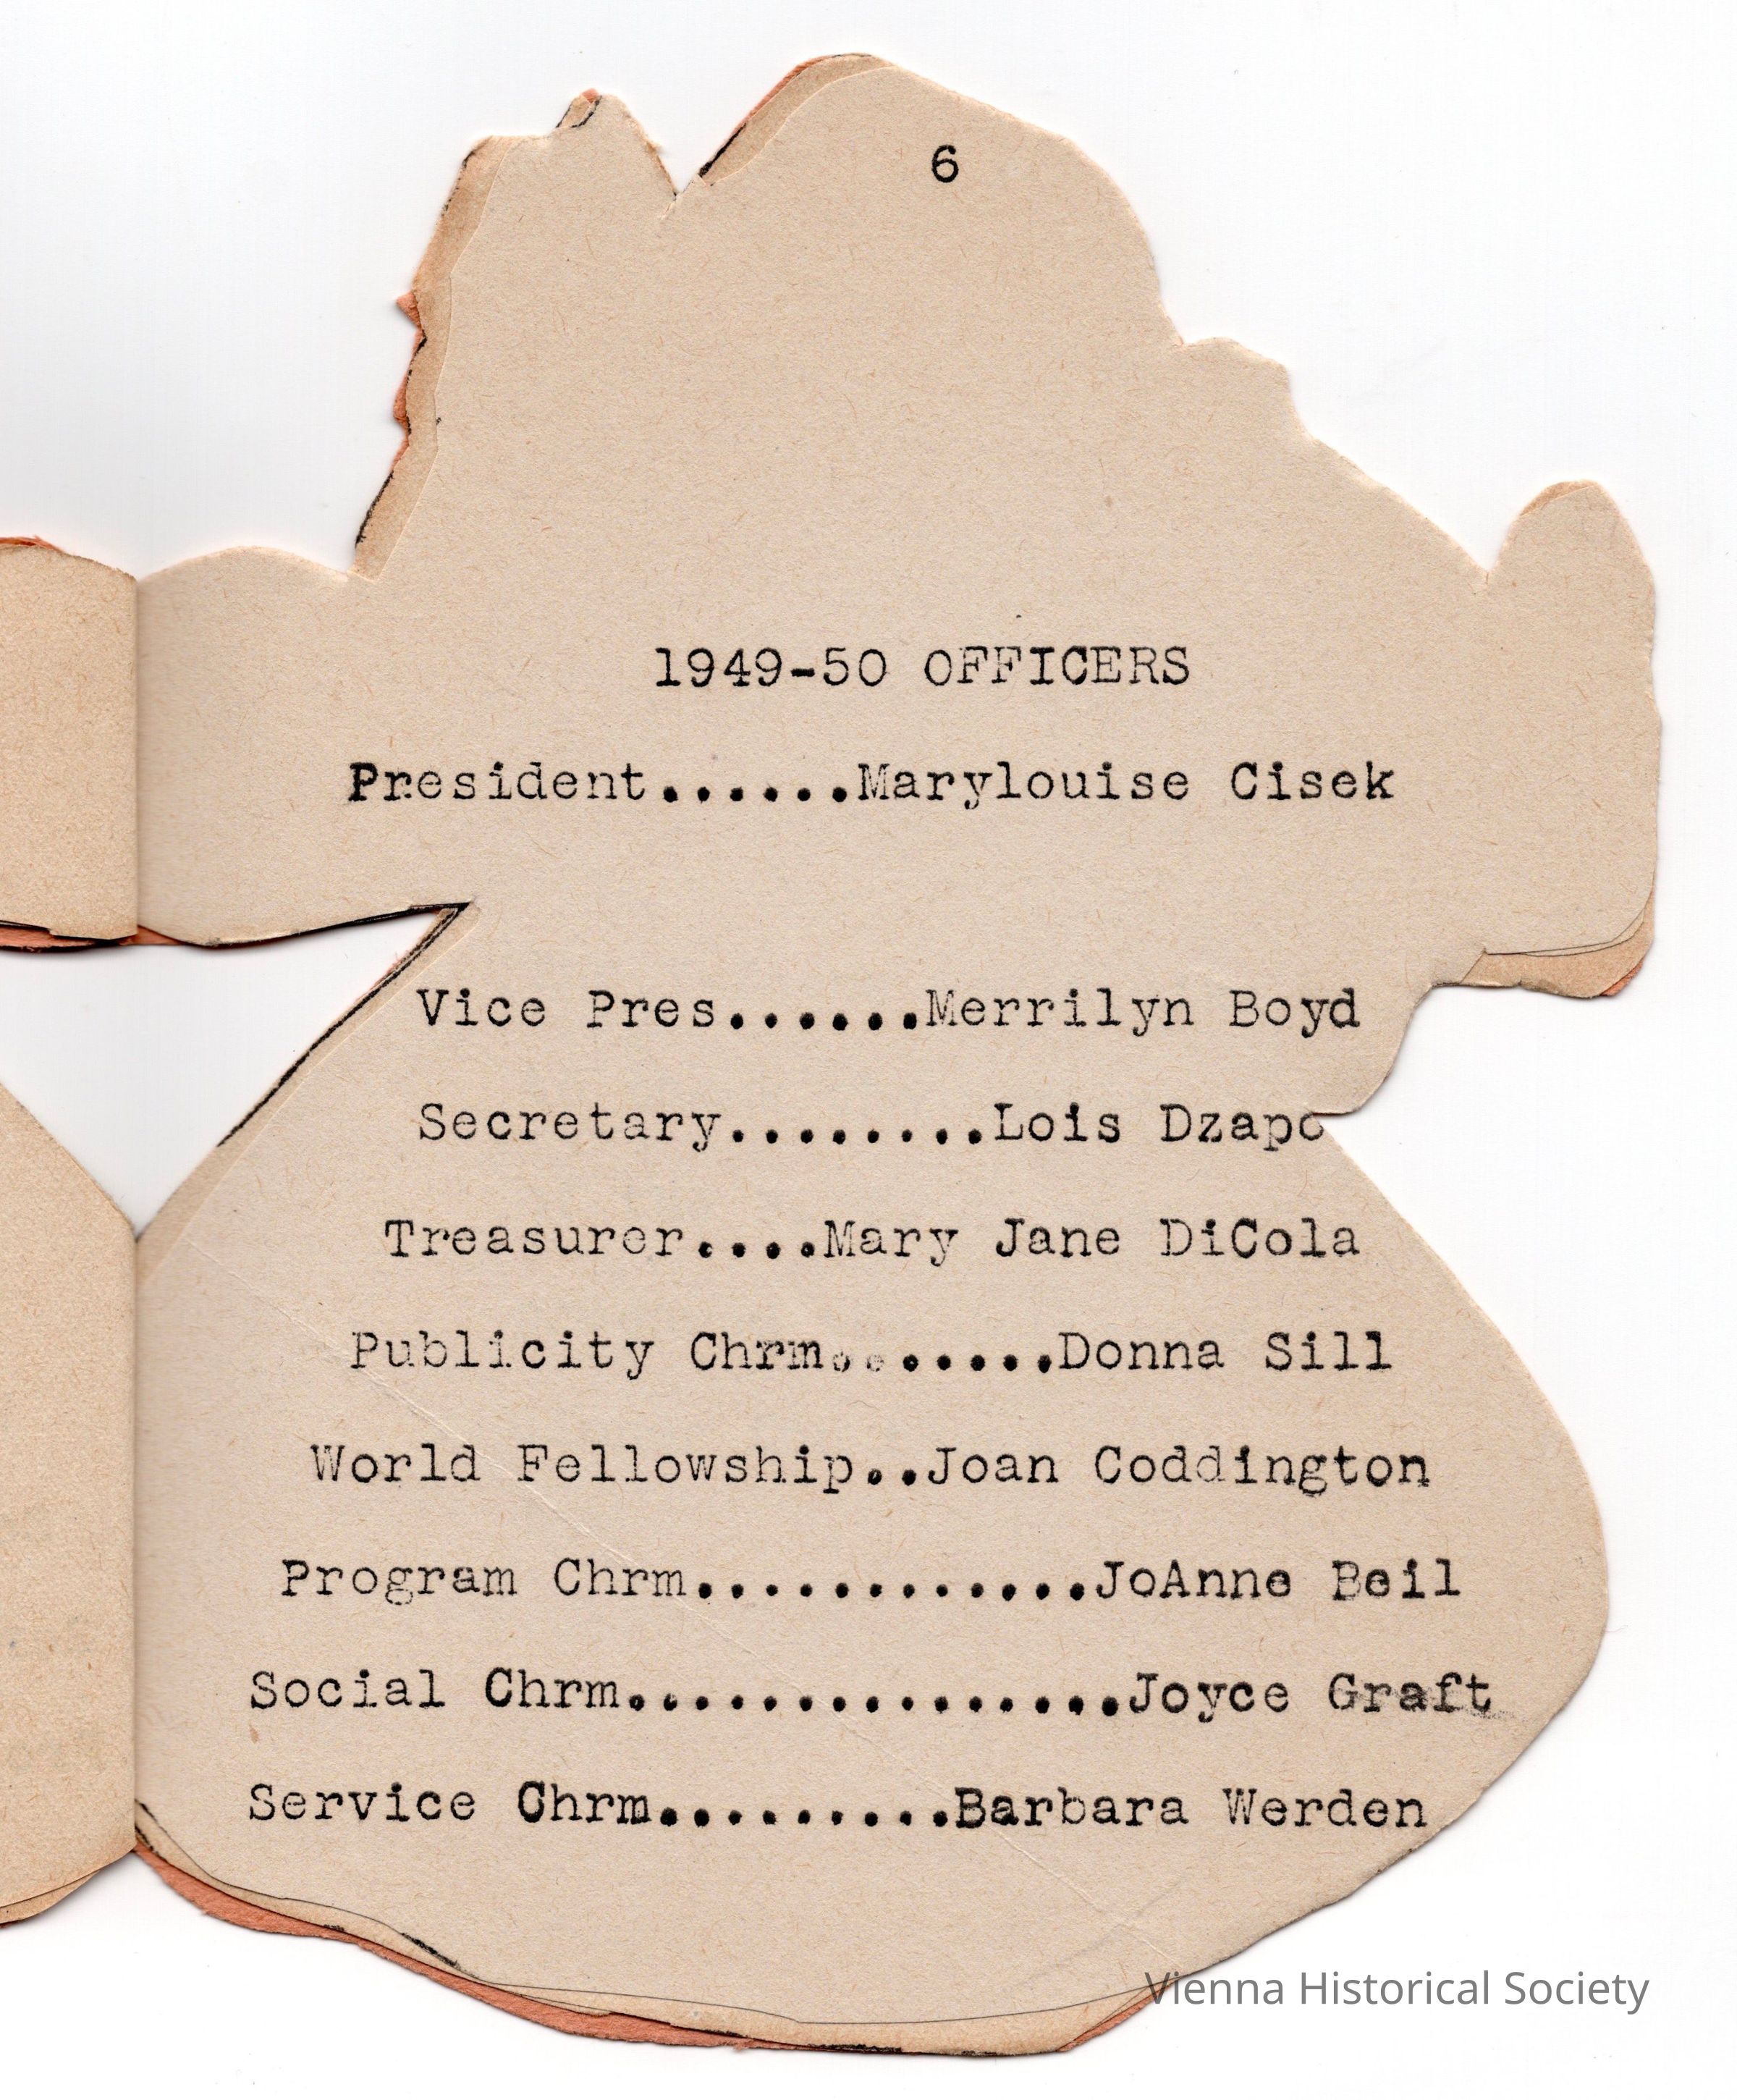 6
1949-50 OFFICERS
President......Marylouise Cisek
Vice Pres......Merrilyn Boyd
Secretary........Lois Dzapo
Treasurer....Mary Jane DiCola
Publicity Chrm.......Donna Sill
World Fellowship..Joan Coddington
Program Chrm............JoAnne Beil
Social Chrm...............Joyce Graft
Service Chrm.........Barbara Werden
Vienna Historical Society